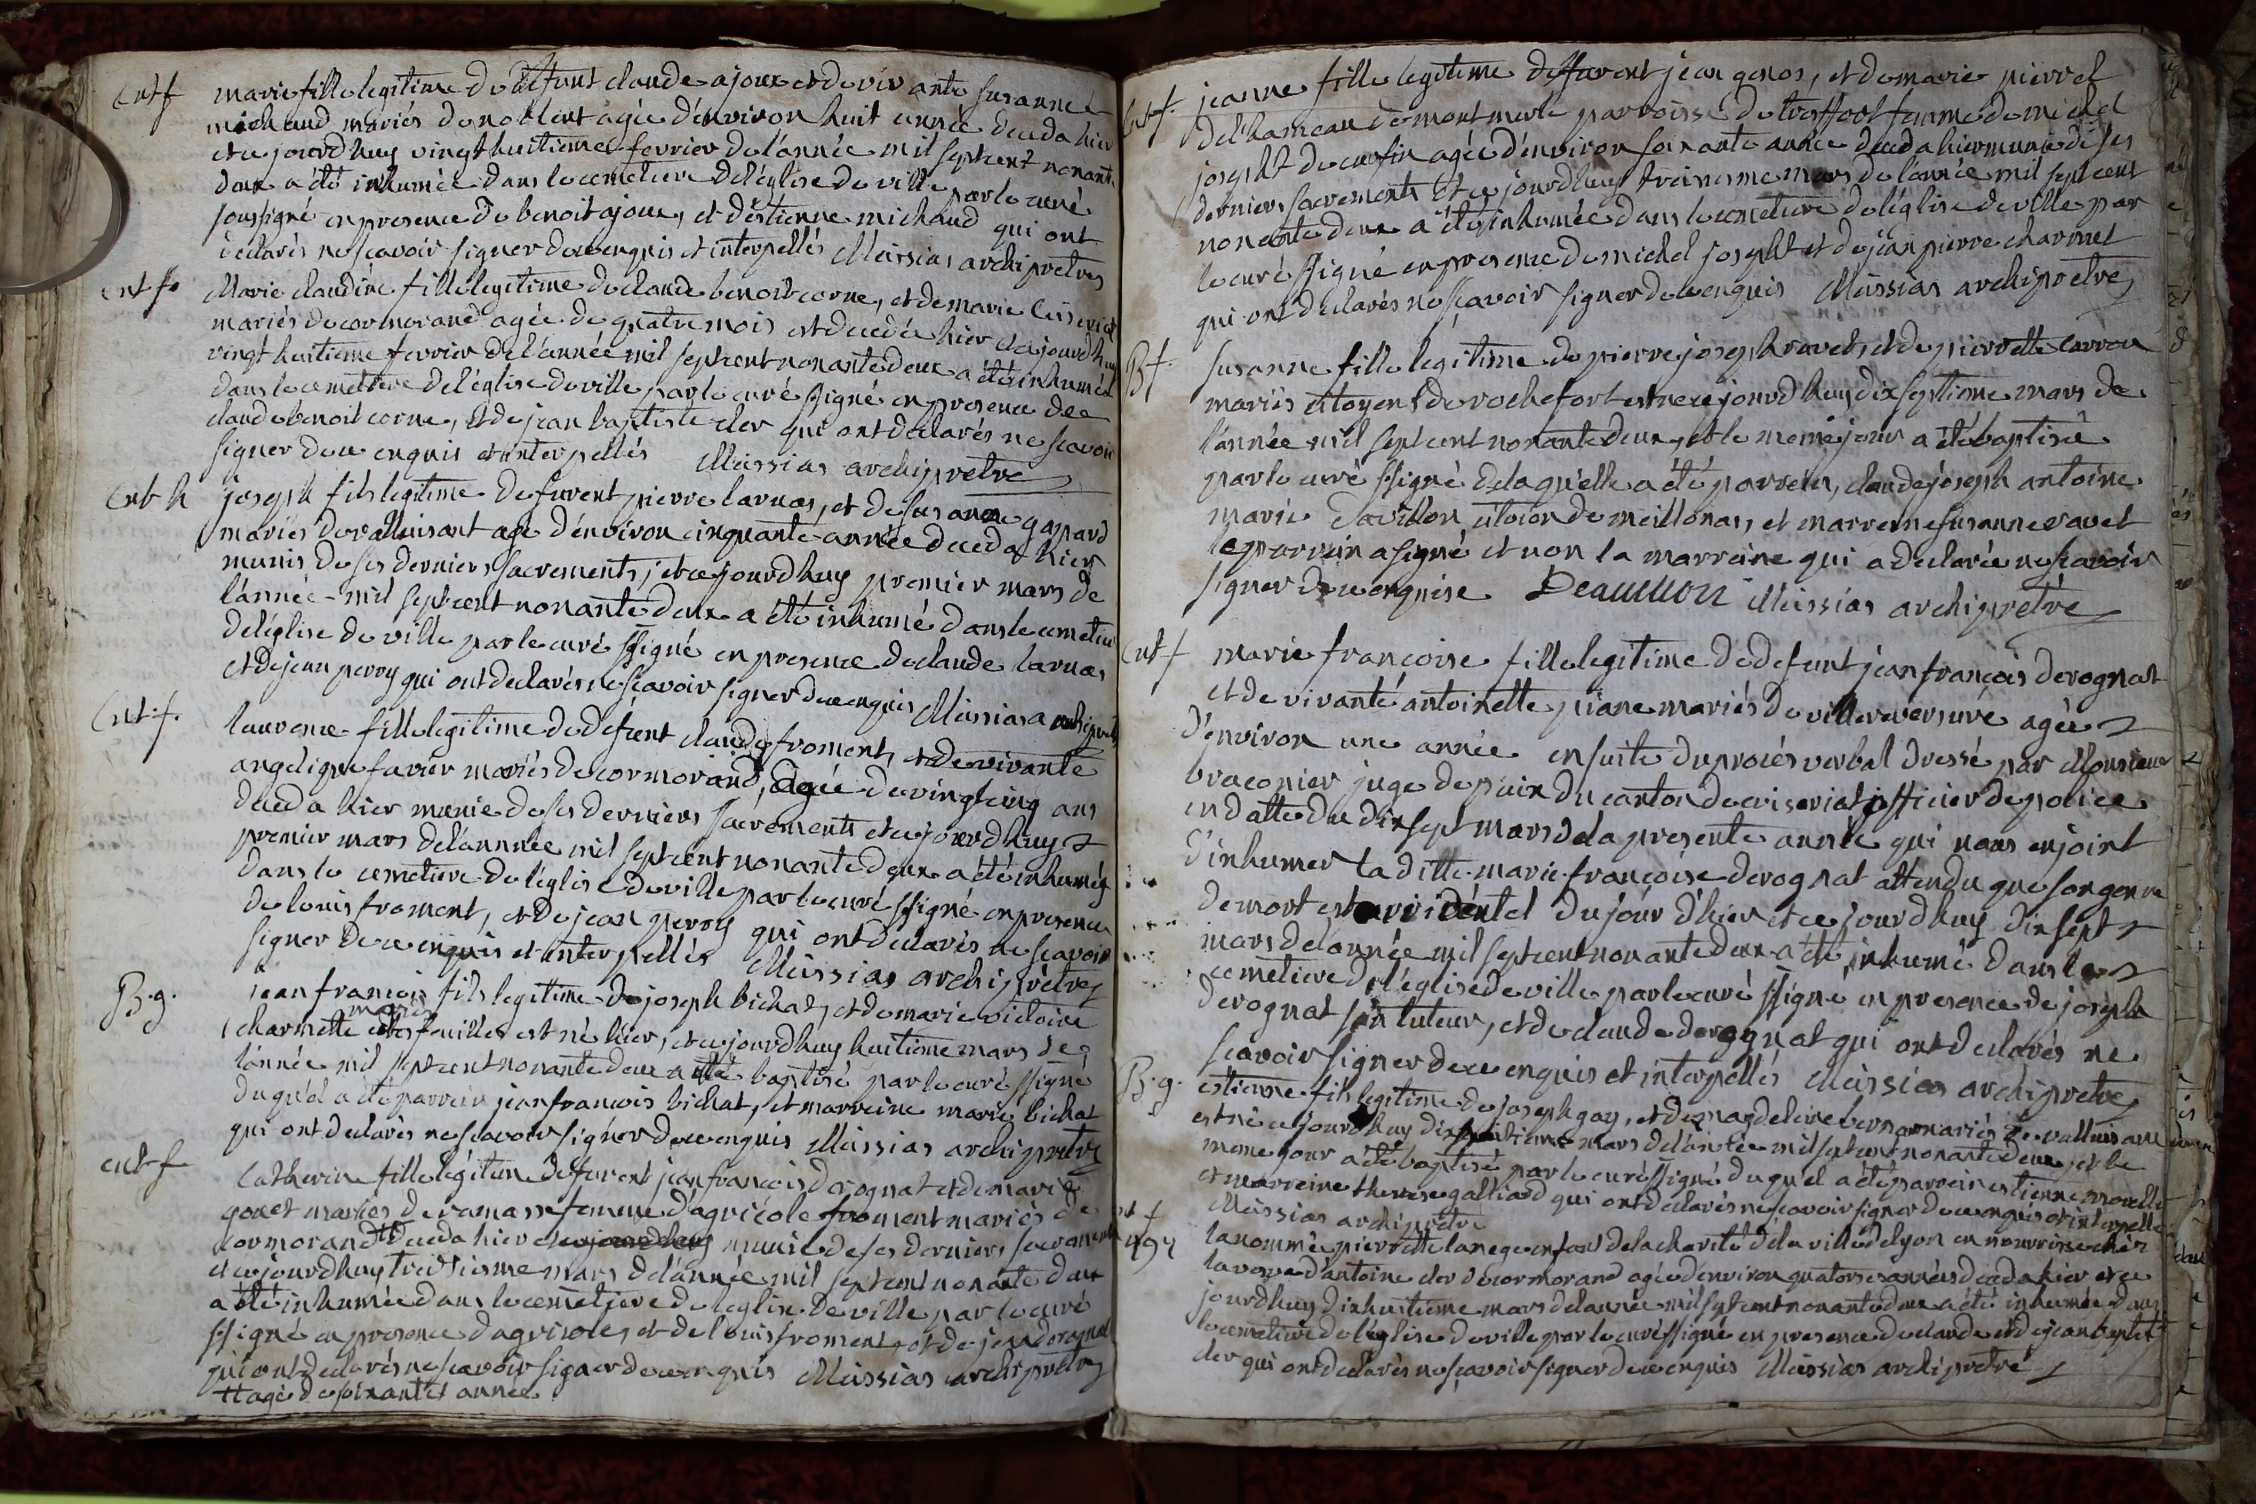 Ent f
marie fille legitime de defunt claude ajoux et de vivante susanne
michaud mariés de noblent agée d'environ huit année deceda hier
et ce jourd'huy vingt huitieme fevrier de l'année mil sept cent nonante
deux a été inhumée dans le cemetiere de l'église de ville par le curé
soussigné en presence de benoit ajoux, et d'estienne michaud qui ont
declarés ne scavoir signer de ce enquis et interpellés Meissias archipretre
ent f.
Marie claudine fille legitime de claude benoit corne, et de marie
mariés de cormorand agée de quatre mois est decedée hier et ce jourd'huy
vingt huitieme fevrier de l'année mil sept cent nonante deux a été inhumée
dans le cemetiere de l'église de ville par le curé ssigné en presence de
claude benoit corne, et de jean baptiste cler qui ont declarés ne scavoir
signer de ce enquis et interpellés Meissias archipretre
Ent h
joseph fils legitime de furent pierre larnas, et de susanne gapard
mariés de valluisant agé d'environ cinquante année deceda hier
munis de ses derniers sacrements, et ce jourd'huy premier mars de
l'année mil sept cent nonante deux a été inhumé dans le cemetiere
de l'église de ville par le curé ssigné en presence de claude larnas
et de jean perroy qui ont declarés ne scavoir signer de ce enquis Meissias archipretre
Ent. f.
laurence fille legitime de defunt claude froment, et de vivante
angelique favier mariés de cormorand, agée de vingt cinq ans
deceda hier munie de ses derniers sacrements et ce jourd'huy
premier mars de l'année mil sept cent nonante deux a été inhumée
dans le cemetiere de l'église de ville par le curé ssigné en presence
de louis froment, et de jean perroy qui ont declarés ne scavoir
signer de ce enquis et interpellés Meissias archipretre
B. g.
jean francois fils legitime de joseph bichat, et de marie victoire
charmette mariés des feuilles est né hier, et ce jourd'huy huitieme mars de
l'année mil sept cent nonante deux a été baptisé par le curé ssigné
duquel a été parrein jean francois bichat, et marreine marie bichat
qui ont declarés ne scavoir signer de ce enquis Meissias archipretre
ent f
Catherine fille legitime de furent jean francois derognat et de marie
gouet mariés de ramasse femme d'agricole froment mariés de
cormorand tt deceda hier et ce jourd'huy munie de ses derniers sacrements
et ce jourd'huy treisieme mars de l'année mil sept cent nonante deux
a été inhumée dans le cemetiere de l'eglise de ville par le curé
ssigné en presence d'agricole, et de louis froment, et de jean derognat
qui ont declarés ne scavoir signer de ce enquis Meissias archipretre
tt agé de soixante année
Ent f.
jeanne fille legitime de furent jean genos, et de marie pierrel
de hameau de montmerle parroisse de treffort femme de michel
josepht de cusin agée d'environ soixante année deceda hier munie de ses
derniers sacrements et ce jourd'huy treisieme mars de l'année mil sept cent
nonante deux a été inhumée dans le cemetiere de l'église de ville par
le curé ssigné en presence de michel josepht et de jean pierre charmet
qui ont declarés ne scavoir signer de ce enquis Meissias archipretre
B f.
susanne fille legitime de pierre joseph ravet, et de pierrette carron
mariés citoyens de rochefort est née ce jourd'huy dix septieme mars de
l'année mil sept cent nonante deux, et le meme jour a été baptisée
par le curé ssigné de laquelle a été parrein, claude joseph antoine
marie davillon, citoien de meillonas, et marreine susanne ravet
le parrain a signé et non la marraine qui a declarée ne scavoir
signer de ce enquise Deavillon Meissias archipretre
Ent f
marie francoise fille legitime de defunt jean francois derognat
et de vivante antoinette piane mariés de villereversure agée
d'environ une année en suitte du procés verbal dressé par Monsieur
braconier juge de paix du canton de ceiseriat officier de police
en datte du dix sept mars de la presente année qui nous enjoint
d'inhumer la ditte marie francoise derognat attendu que son genre
de mort est accidentel du jour d'hier et ce jourd'huy dix sept
mars de l'année mil sept cent nonante deux a été inhumé dans le
cemetiere de l'église de ville par le curé ssigné en presence de joseph
derognat son tuteur, et de claude derognat qui ont declarés ne
scavoir signer de ce enquis et interpellés Meissias archipretre
B. g.
estienne fils legitime de joseph gay, et de magdeleine bernon mariés de valluisant
est né ce jourd'huy dix huitieme mars de l'année mil sept cent nonante deux, et le
meme jour a été baptisé par le curé ssigné duquel a été parrein estienne morelle
et marreine therese galliard qui ont declarés ne scavoir signer de ce enquis et interpellés
Meissias archipretre
la nommée pierrette lanege enfant de la charité de la ville de lyon en nourrisse chéz
la veuve d'antoine cler de cormorand agée d'environ quatorse années deceda hier et ce
jourd'huy dix huitieme mars de l'année mil sept cent nonante deux a été inhumée dans
le cemetiere de l'église de ville par le curé ssigné en presence de claude et de jean baptiste
cler qui ont declarés ne scavoir signer de ce enquis Meissias archipretre